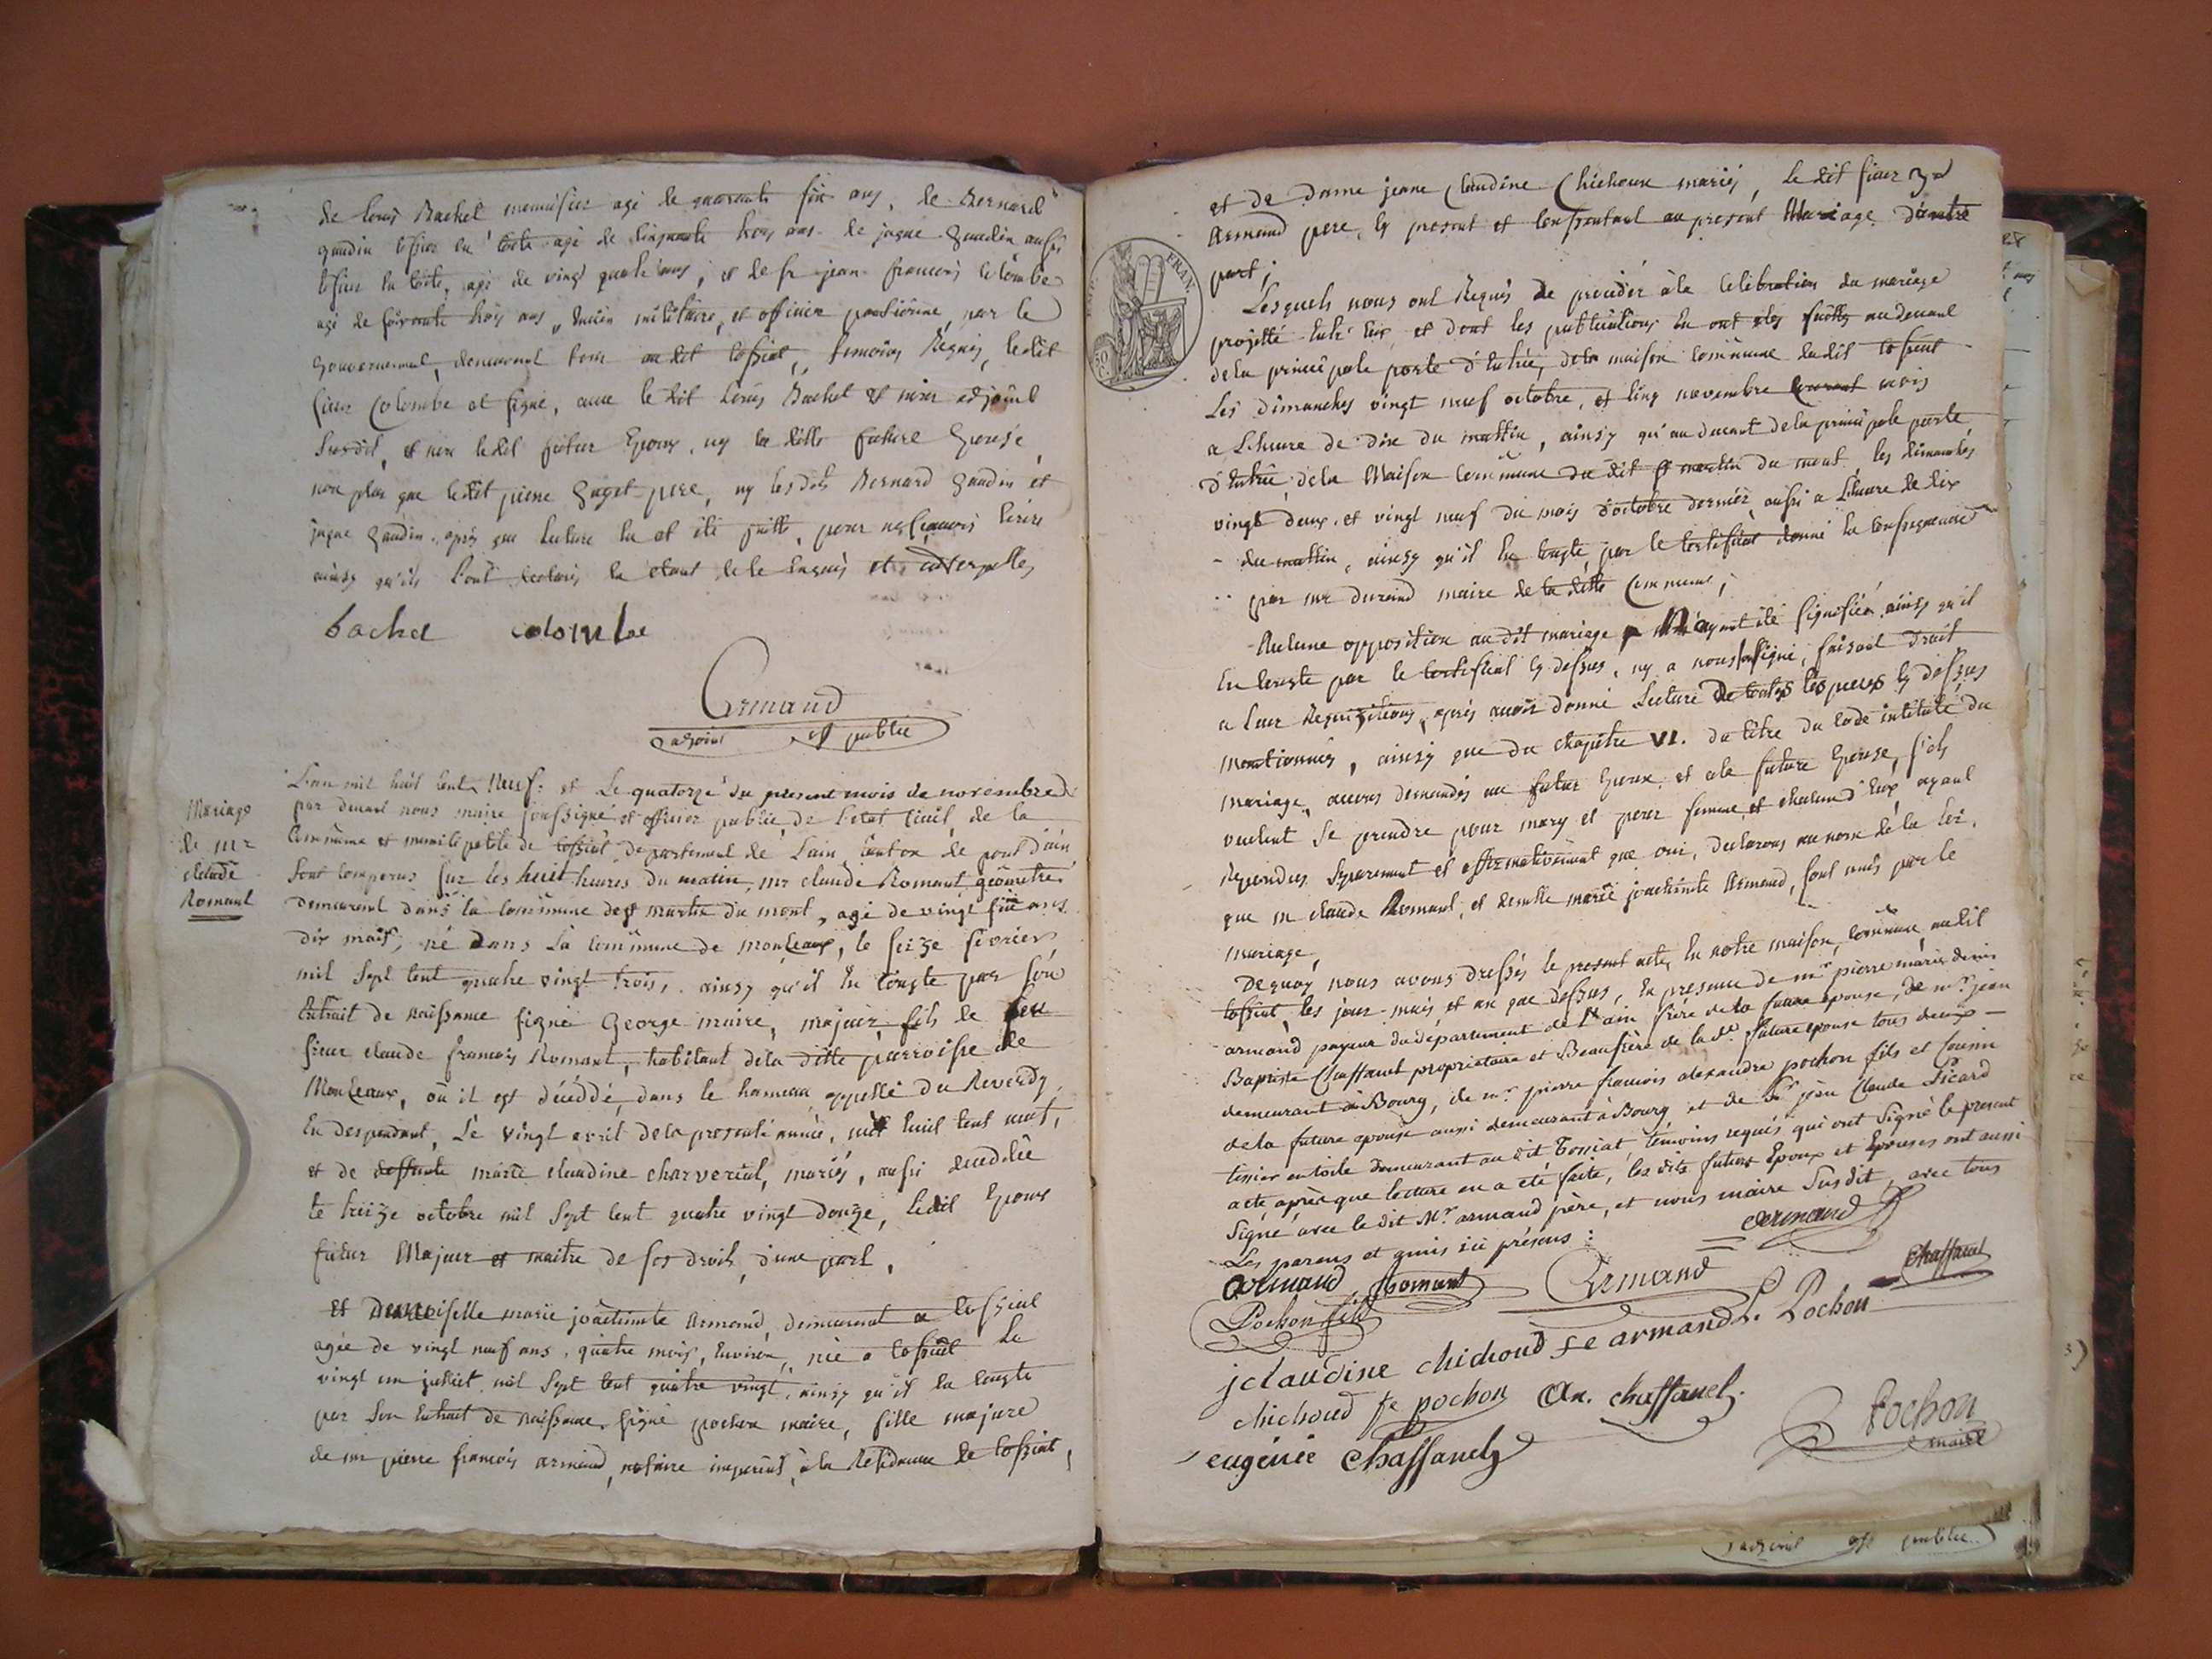 de Louis Bachet menuisier agé de quarante six ans, de Bernard
gaudin tissier en toile agé de cinquante trois ans de jaque gaudin aussi
tissier en toile, agé de vingt quatre ans, et de sr jean francois Colombe
agé de soixante trois ans, ancien militaire, et officier pentionné par le
gouvernement, demeurant tous au dit tossiat, temoins Requis, le dit
sieur Colombe et signé, avec le dit Louis Bachet et nous adjoint
susdit, et non le dit futur Epoux, ny la ditte future Epouse,
non plus que le dit pierre guget pere, ny les dits Bernard gaudin et
jaque gaudin, après que Lecture en et été faitte, pour ne sçavoir Ecrire
ainsy qu'ils l'ont declaré en étant de ce Enquis et interpellés
bachet colombe
Armand
adjoint off public
L'an mil huit cent Neuf: et Le quatorze du present mois de novembre
par devant nous maire soussigné et officier public de l'etat Civil de la
Commune et municipalité de tossiat departement de Lain Canton de pont d'ain
Sont comparus sur les huit heures du matin, mr claude Romant, géometre
demeurant dans la commune de st martin du mont, agé de vingt six ans
dix mois, né dans La Commune de Montceaux, le seize fevrier
mil sept cent quatre vingt trois, ainsy qu'il En conste par son
Extrait de naissance signé George maire, majeur fils de feu
sieur claude francois Romant, habitant de la ditte parroisse de
Montceaux, où il est décédé, dans le hameau appellé du Reverdy
En dependant, Le vingt avril de la presente année, mil huit cent neuf,
et de deffunte marie claudine charveriat, mariés, aussi decedée
le treize octobre mil sept cent quatre vingt douze, ledit Epoux
futur Majeur et maitre de ses droits, d'une part,
Et Demoiselle marie joachinte Armand, demeurant a tossiat
agée de vingt neuf ans, quatre mois, Environ, née a tossiat le
vingt un juillet mil sept cent quatre vingt, ainsy qu'il En conste
par son Extrait de naissance, signé pochon maire, fille majeure
de mr pierre francois armand, notaire imperial, à la Residance de tossiat,
Mariage
de mr
claude
Romant
et de Dame jeane Claudine Chichoux mariés, le dit sieur
Armand pere, cy present et consentant au present Mariage d'autre
part;
Lesquels nous ont Requis de proceder à la celebration du mariage
projetté Entr'eux, et dont les publications En ont été faittes au devant
de la principale porte d'Entrée, de la maison Commune dudit tossiat
Les Dimanches vingt neuf octobre, et cinq novembre courant mois
a L'heure de dix du mattin, ainsy qu'au devant de la principale porte
d'Entrée de la Maison Commune du dit st martin du mont, les dimanches
vingt deux et vingt neuf du mois d'octobre dernier, aussi a L'heure de dix
du mattin, ainsy qu'il En conste par le certificat donné En consequence
par mr durand maire de la ditte Commune;
Aucune opposition au dit mariage N'ayant été signifiée ainsy qu'il
En conste par le certificat cy dessus, ny a nous soussigné, faisant droit
a Leur Requisitions, après avoir donné Lecture De toutes les pieces cy dessus
mentionnées, ainsy que du chapitre VI. du titre du Code intitulé du
mariage, avons demandés au futur Epoux, et a la future Epouse, s'ils
veulent se prendre pour mary et pour femme, et chacun d'Eux ayant
Repondus Separement et affirmativement que oui, declarons au nom de la loi,
que mr claude Romant, et demlle marie joachinte Armand, sont unis par le
mariage,
De quoy nous avons dressés le present acte, En notre maison Commune, audit
tossiat, les jour mois et an que dessus, En presence de mr pierre marie denis
armand payeur du departement de l'ain frère de la future epouse, de mr jean
Baptiste Chaffanel propriétaire et Beaufrère de la de future epouse tous deux —
demeurant à Bourg, de mr pierre francois alexandre pochon fils et Cousin
de la future epouse aussi demeurant à Bourg et de Sr jean Claude Picard
tissier en toile demeurant au dit Tossiat, témoins requis qui ont signé le present
acte après que lecture en a été faite, les dits futurs Epoux et Epouses ont aussi
signé avec le dit Mr armand père, et nous maire Susdit, avec tous
Les parens et amis ici présens :
armand
armand Romant Armand Chaffanel
Pochon fils
L. Pochon
j claudine chichoud fe armand
chichoud fe pochon An. chaffanel.
eugénie Chaffanel
Pochon
maire
adjoint off public